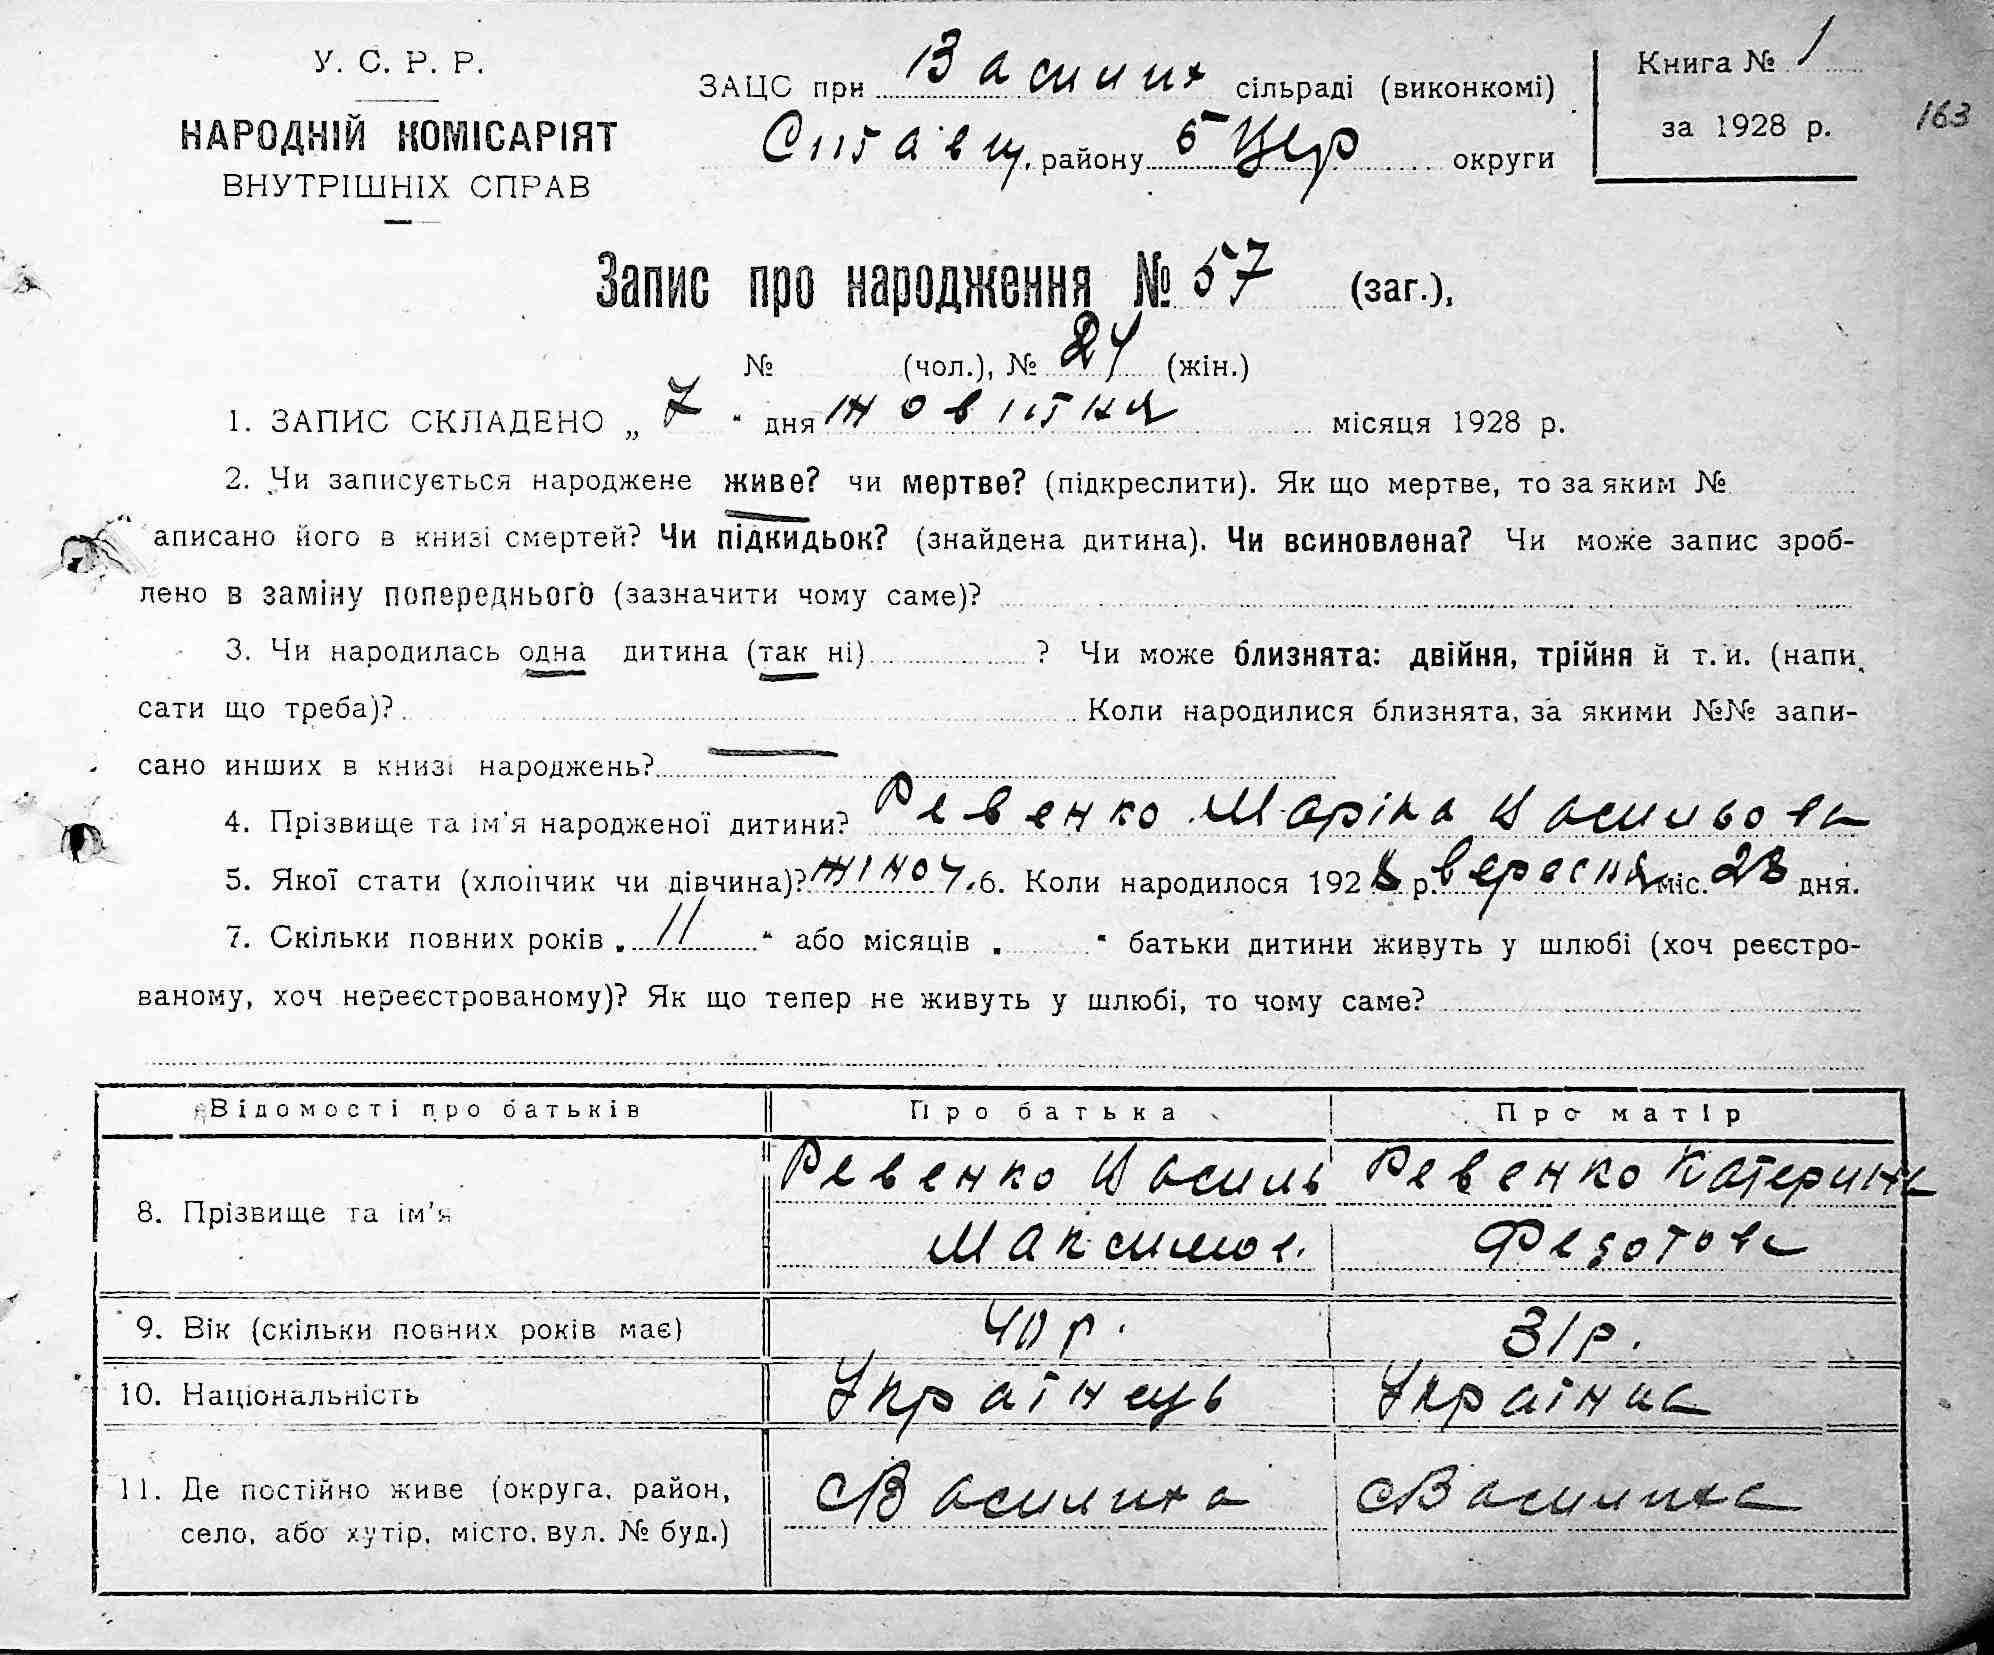 У. С. Р. Р.
НАРОДНІЙ КОМІСАРІЯТ
ВНУТРІШНІХ СПРАВ
ЗАЦС при Василих сільраді (виконкомі)
Ставищ. району Б Цер округи
Книга № 1
за 1928 р.
163
Запис про народження № 57 (заг.),
№ (чол.), № 24 (жін.)
1. ЗАПИС СКЛАДЕНО „ 7 " дня жовтня місяця 1928 р.
2. Чи записується народжене живе? чи мертве? (підкреслити). Як що мертве, то за яким №
аписано його в книзі смертей? Чи підкидьок? (знайдена дитина). Чи всиновлена? Чи може запис зроб-
лено в заміну попереднього (зазначити чому саме)?
3. Чи народилась одна дитина (так ні) ? Чи може близнята: двійня, трійня й т. и. (напи
сати що треба)? Коли народилися близнята, за якими №№ запи-
сано инших в книзі народжень? —
4. Прізвище та ім'я народженої дитини? Ревенко Маріна Васильова
5. Якої стати (хлопчик чи дівчина)? жіноч. 6. Коли народилося 1928 р. вересня міс. 28 дня.
7. Скільки повних років „ 11 " або місяців „ " батьки дитини живуть у шлюбі (хоч реєстро-
ваному, хоч нереєстрованому)? Як що тепер не живуть у шлюбі, то чому саме?
Відомості про батьків Про батька Про матір
8. Прізвище та ім'я Ревенко Василь Максимов. Ревенко Катерина Федотова
9. Вік (скільки повних років має) 40 р. 31 р.
10. Національність Українець Українка
11. Де постійно живе (округа, район, село, або хутір, місто, вул. № буд.) с Василиха с Василиха